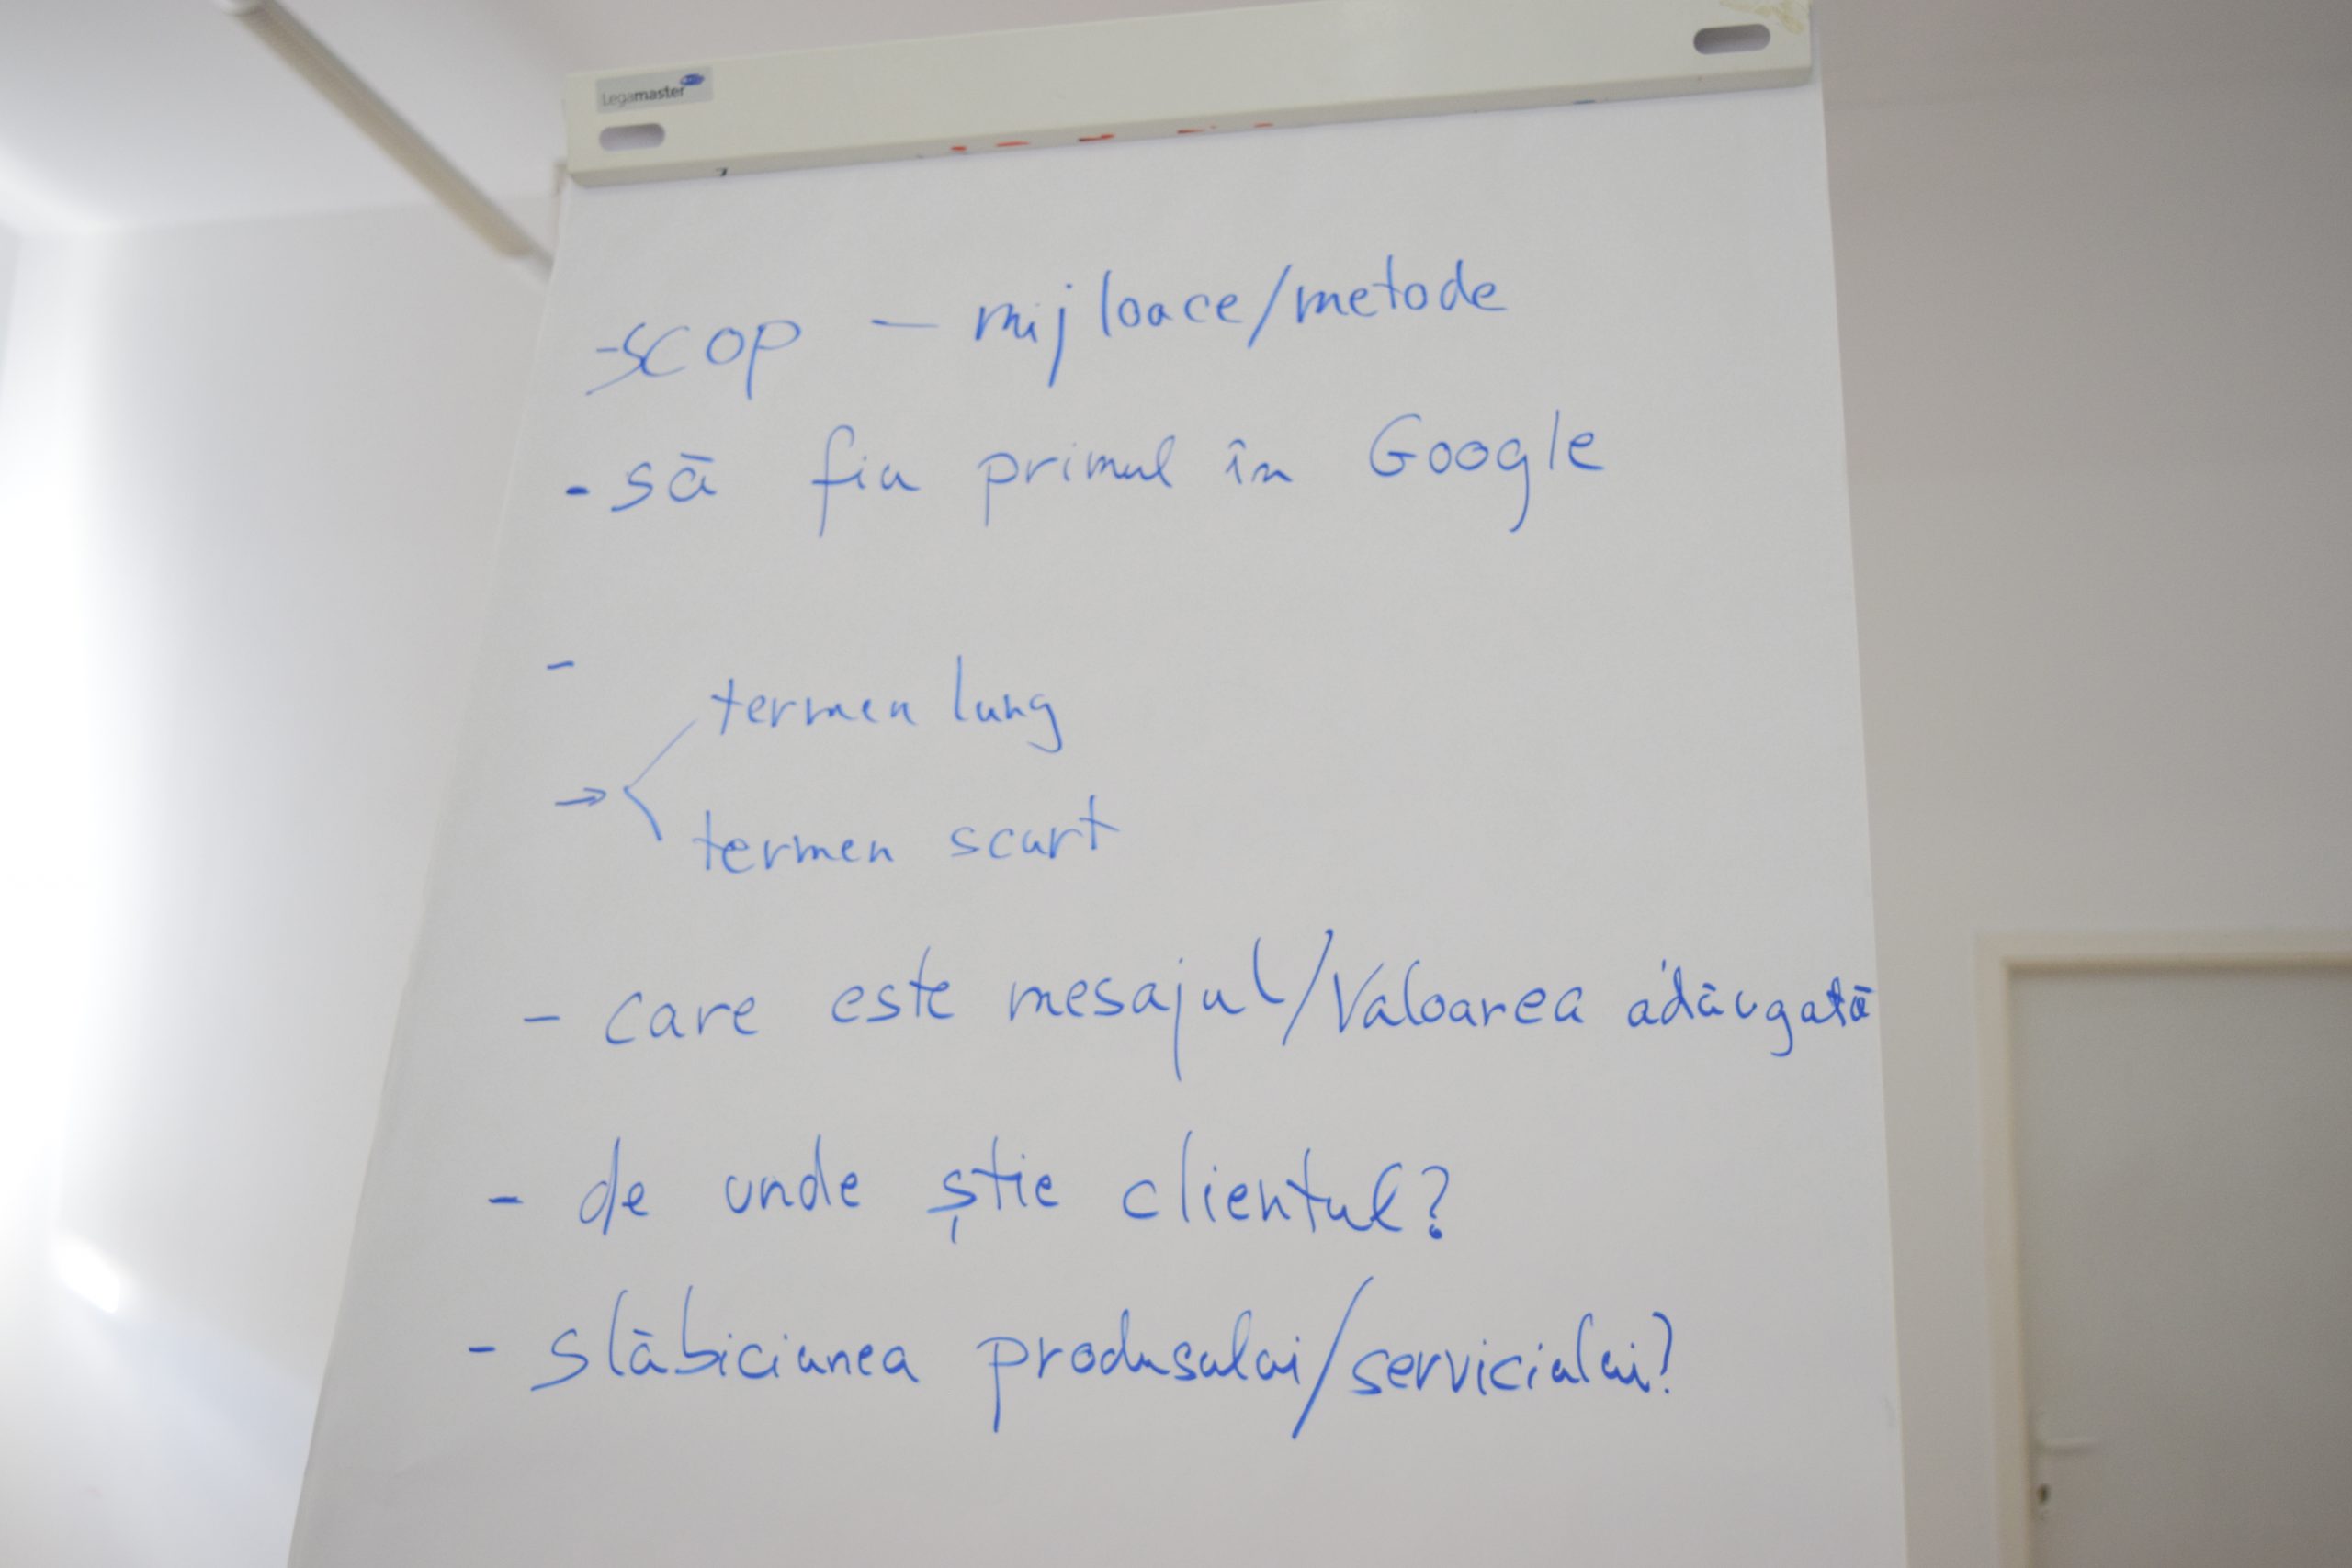 Legamaster
-scop — mijloace/metode
- să fiu primul în Google
-
termen lung
→
termen scurt
- care este mesajul/Valoarea adăugată
- de unde știe clientul?
- slăbiciunea produsului/serviciului?